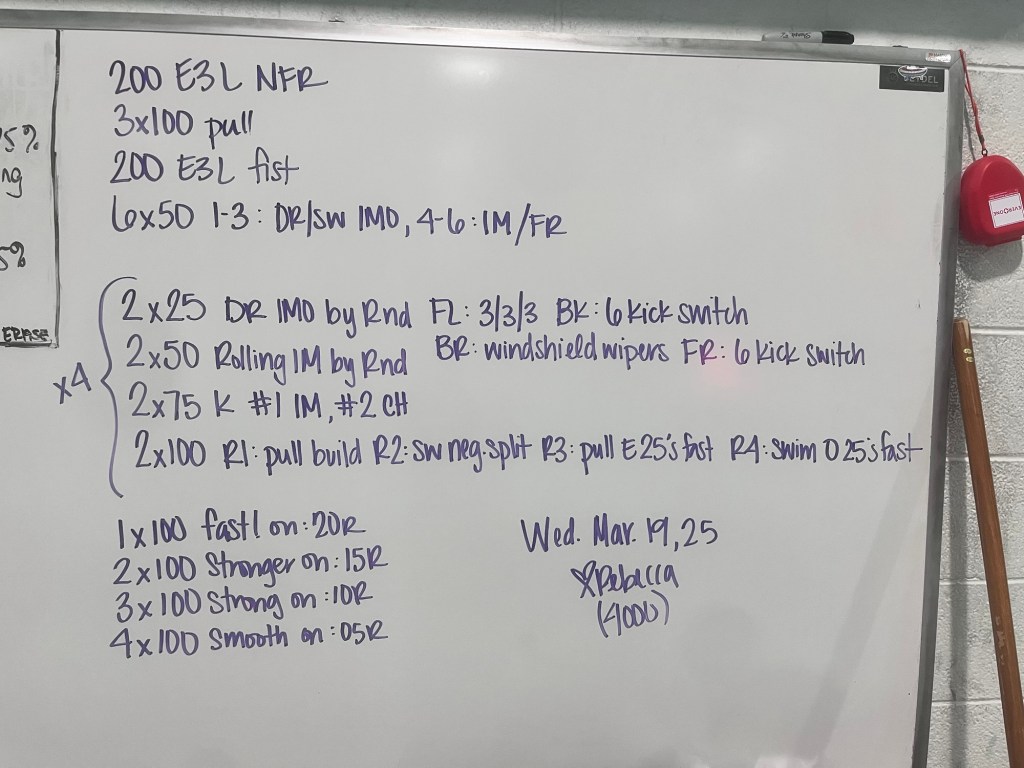 200 E3L NFR
3x100 pull
200 E3L fist
6x50 1-3: DR/SW IMO, 4-6: IM/FR
x4
2x25 DR IMO by Rnd FL: 3/3/3 BK: 6 kick switch
2x50 Rolling IM by Rnd BR: windshield wipers FR: 6 kick switch
2x75 K #1 IM, #2 CH
2x100 R1: pull build R2: SW neg. split R3: pull E 25's fast R4: swim O 25's fast
1x100 fast! on :20R
2x100 Stronger on :15R
3x100 Strong on :10R
4x100 Smooth on :05R
Wed. Mar. 19, 25
Rebecca
(4000)
5%
ng
5%
ERASE